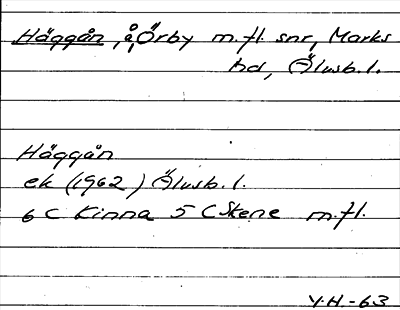 Häggån, å, Örby m.fl. snr, Marks
hd, Älvsb. l.
Häggån
ek (1962) Älvsb. l.
6 C Kinna 5 C Skene m.fl.
Y.H.-63